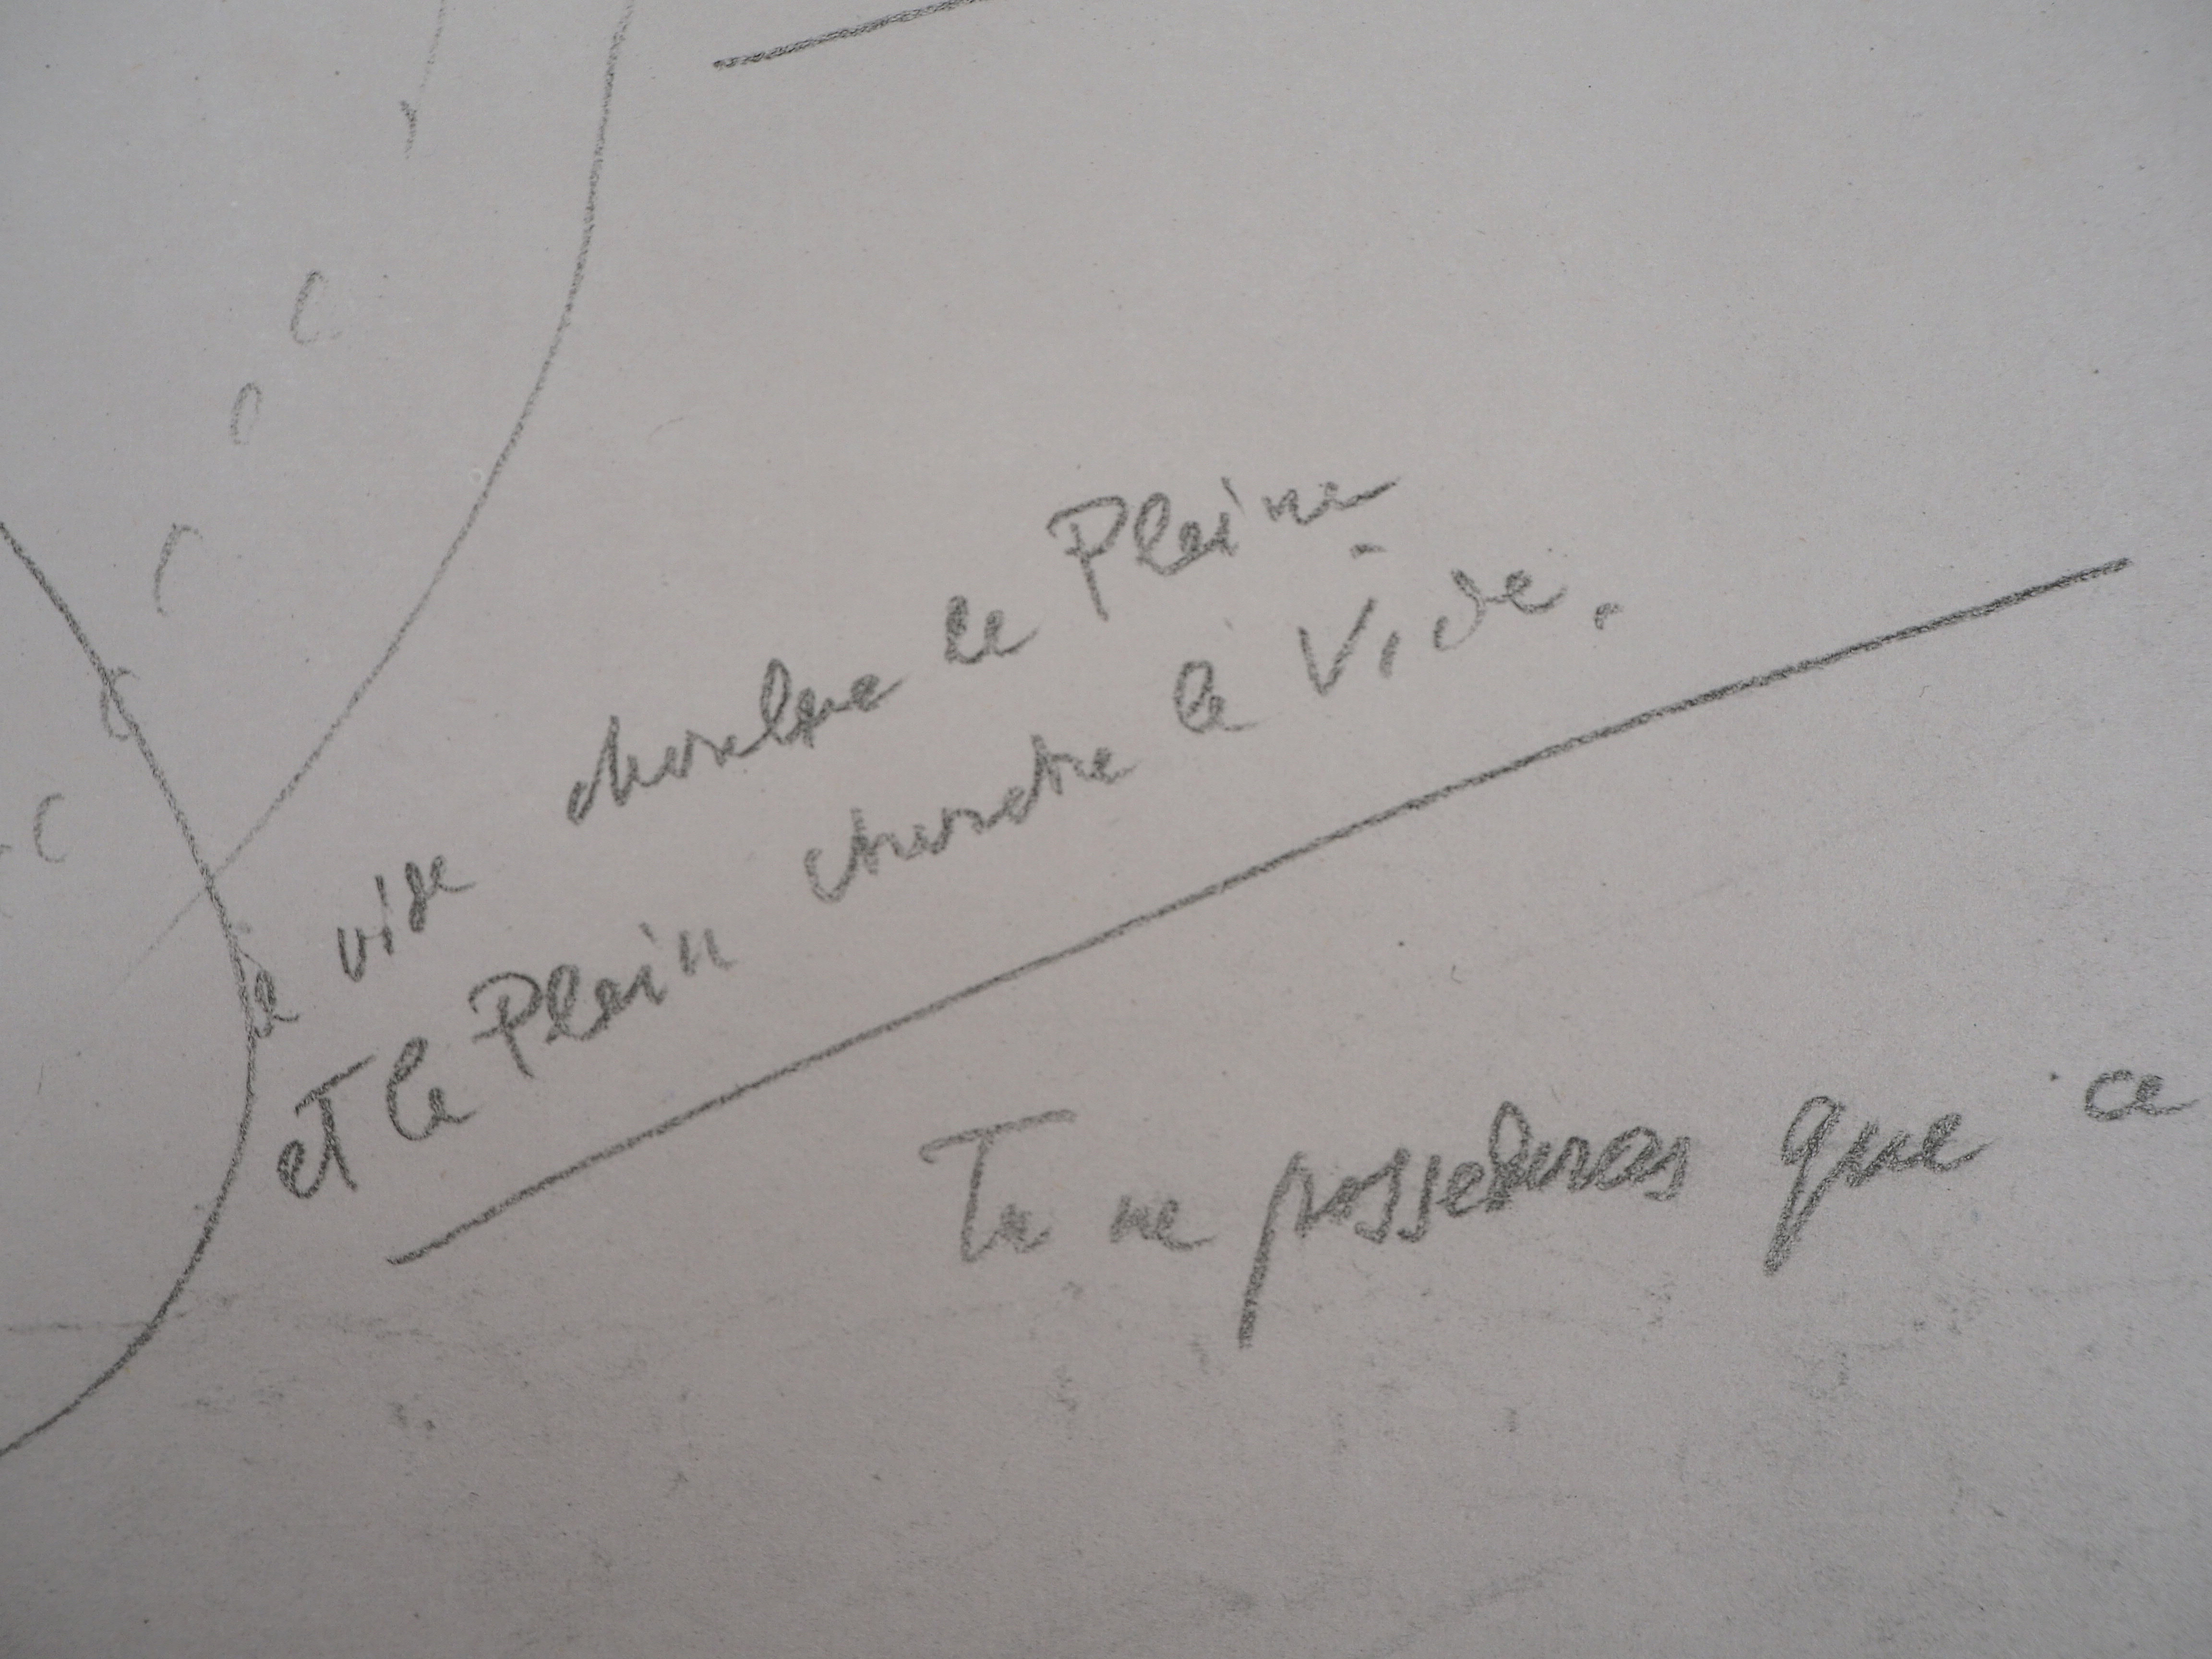 le vide cherche le Plein
et le Plein cherche le Vide.
Tu ne possederas que ce